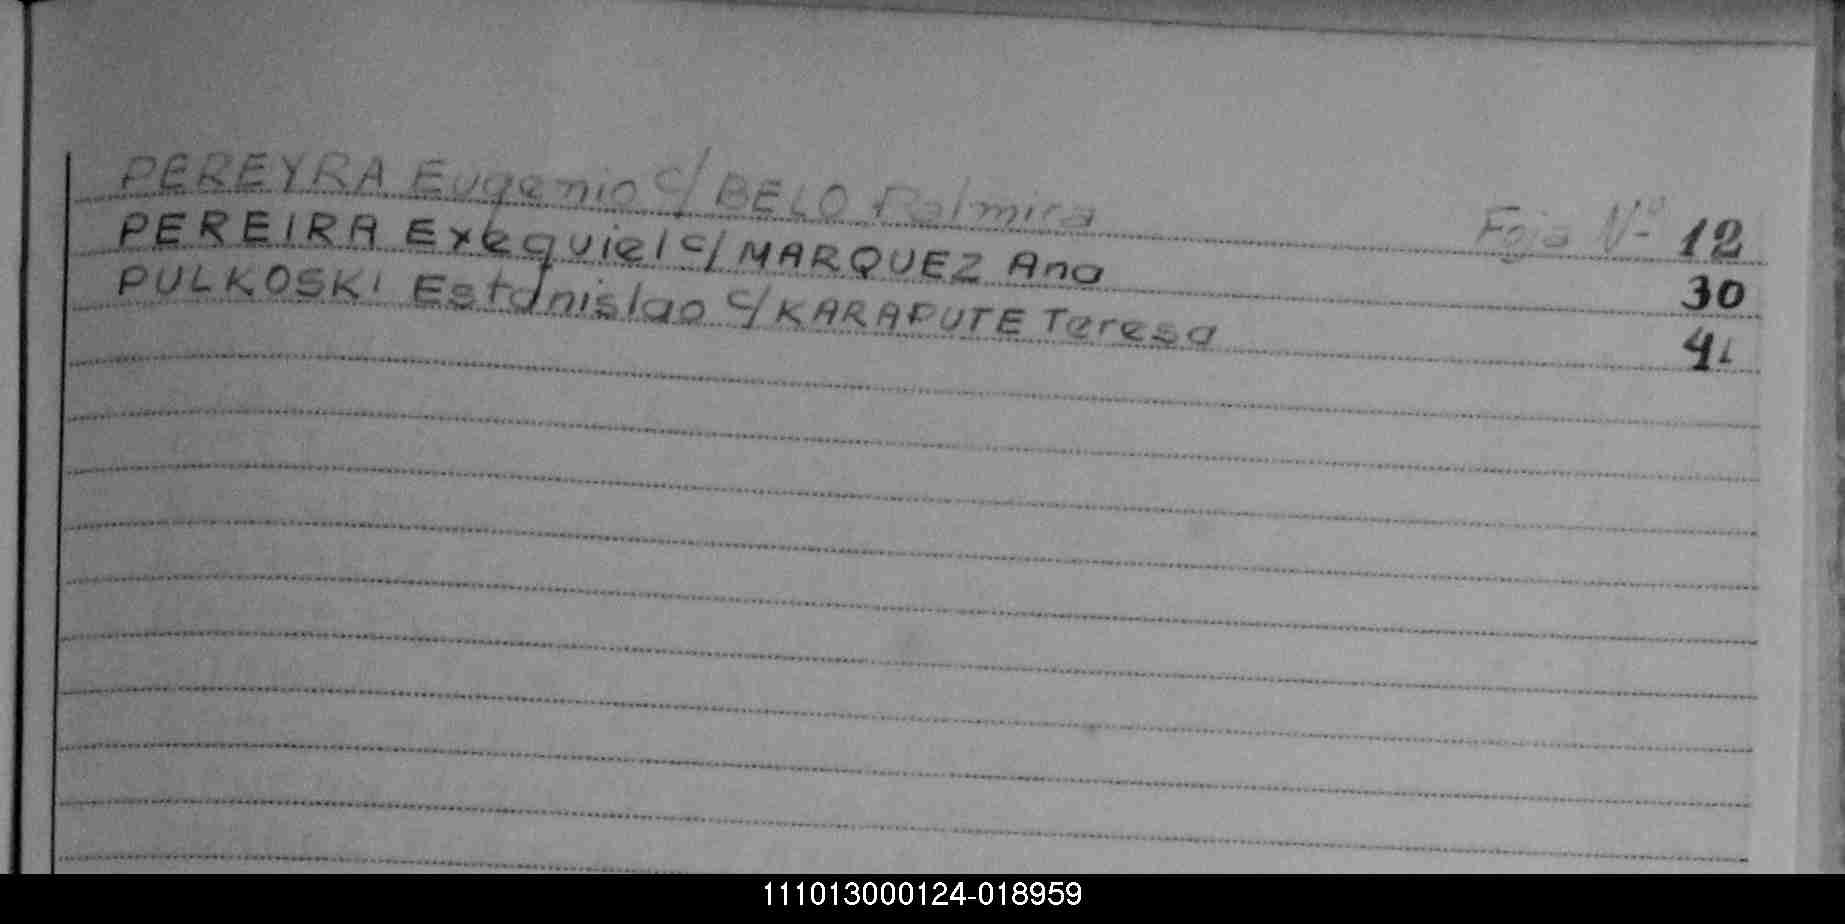 PEREYRA Eugenio c/ BELO Palmira Foja Nº 12
PEREIRA Exequiel c/ MARQUEZ Ana 30
PULKOSKI Estanislao c/ KARAPUTE Teresa 41
111013000124-018959